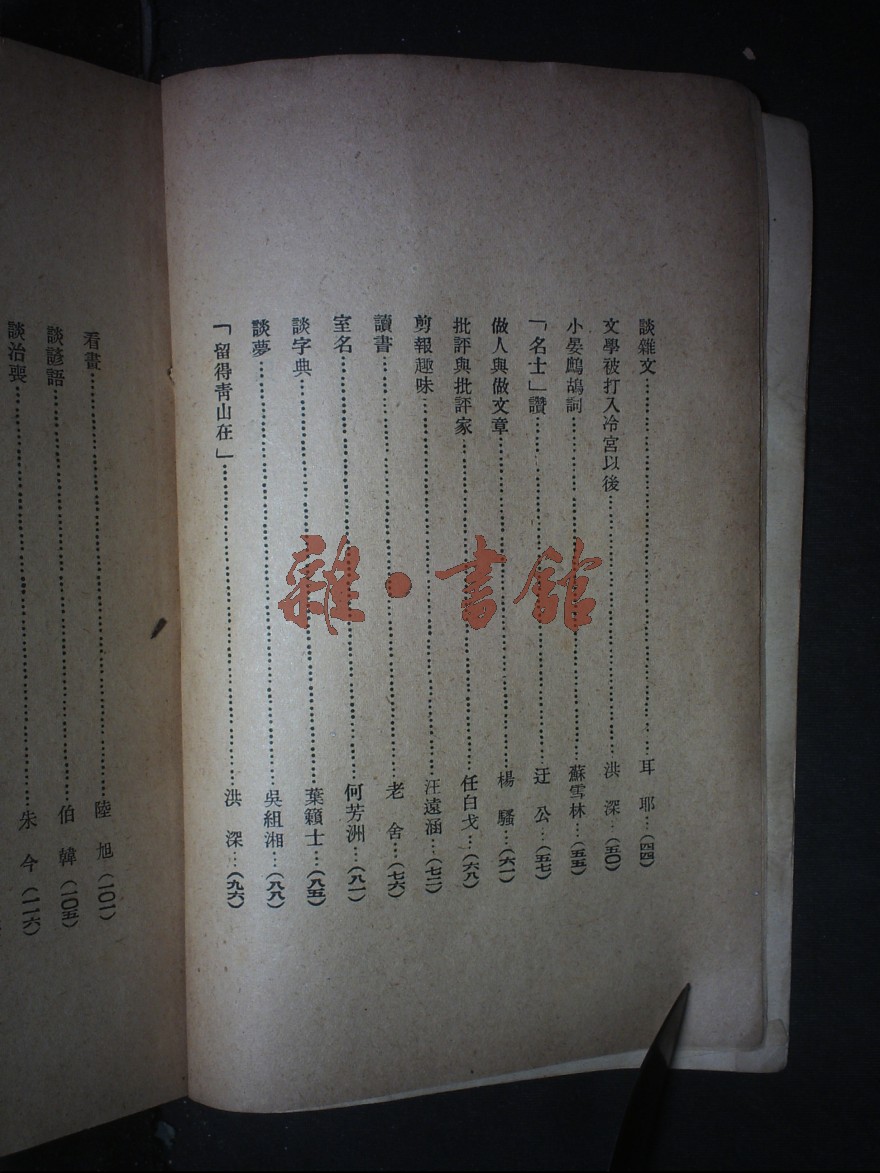 談雜文……耳耶…(四四)
文學被打入冷宮以後……洪深…(五〇)
小晏鷓鴣詞……蘇雪林…(五五)
「名士」讚……迂公…(五七)
做人與做文章……楊騷…(六一)
批評與批評家……任白戈…(六八)
剪報趣味……汪遠涵…(七二)
讀書……老舍…(七六)
室名……何芳洲…(八一)
談字典……葉籟士…(八五)
談夢……吳組湘…(八八)
「留得青山在」……洪深…(九六)
看畫……陸旭(一〇一)
談諺語……伯韓(一〇五)
談治喪……朱今(一一六)
雜·書館